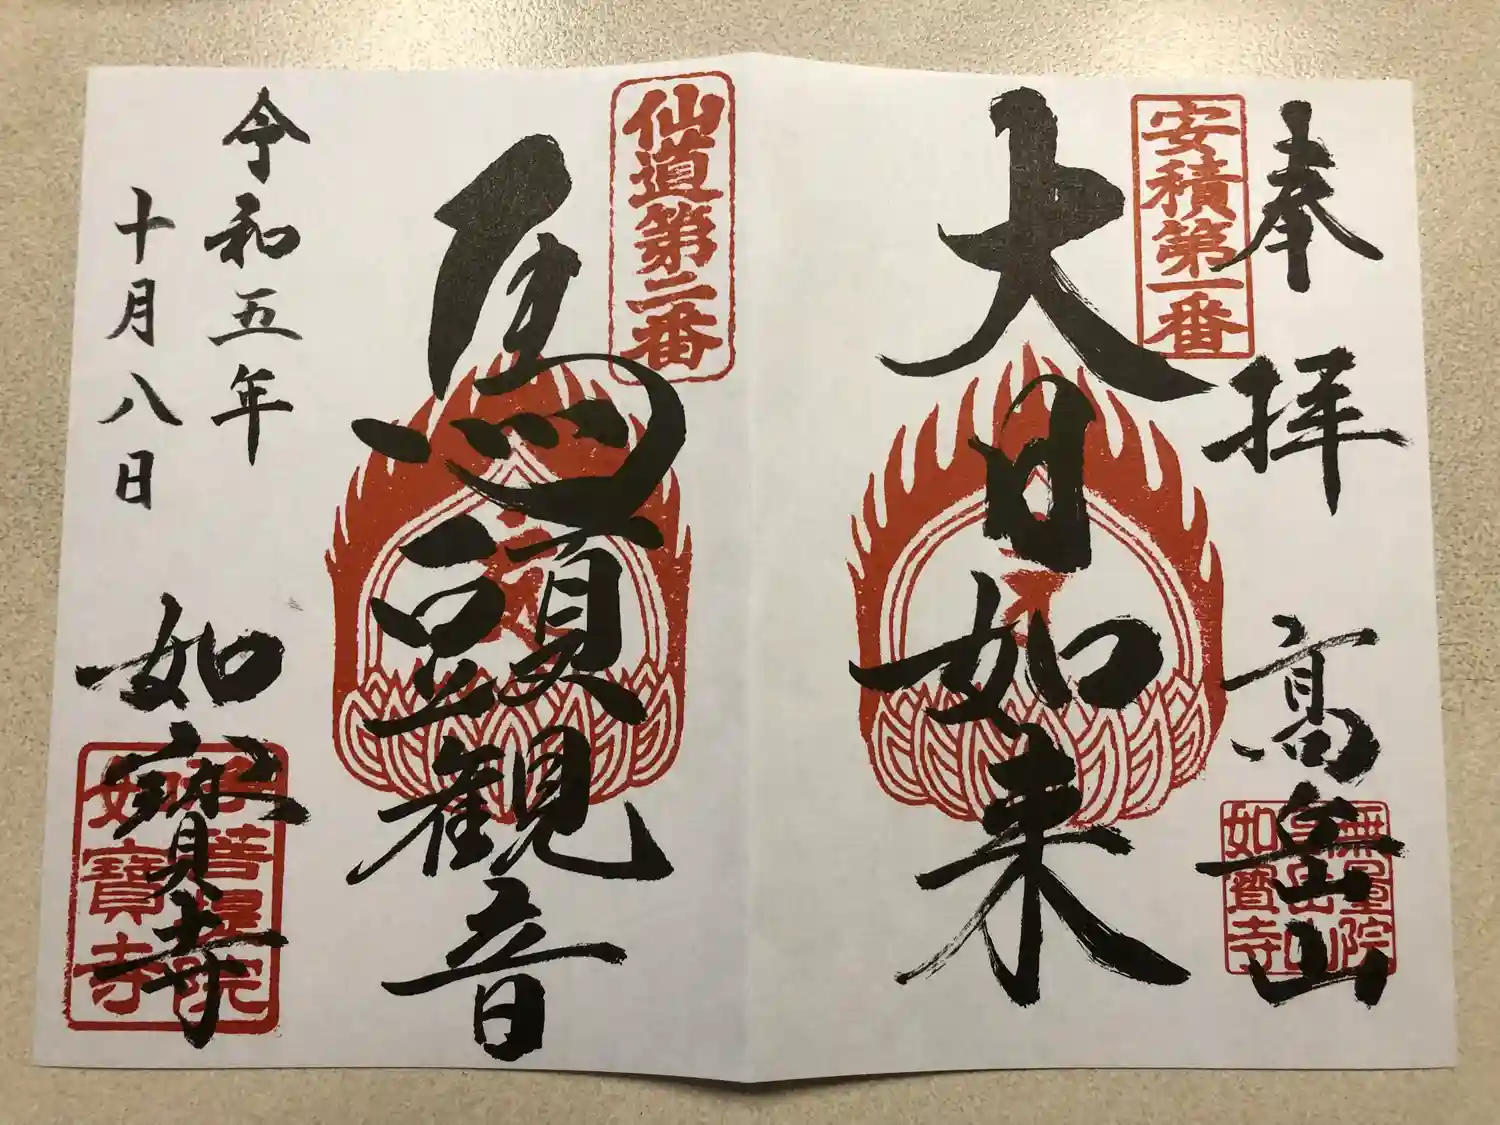 奉拝
高岳山
安積第一番
大日如来
無量院
如寶寺
仙道第三番
馬頭観音
令和五年
十月八日
如寳寺
菩提院
如寶寺